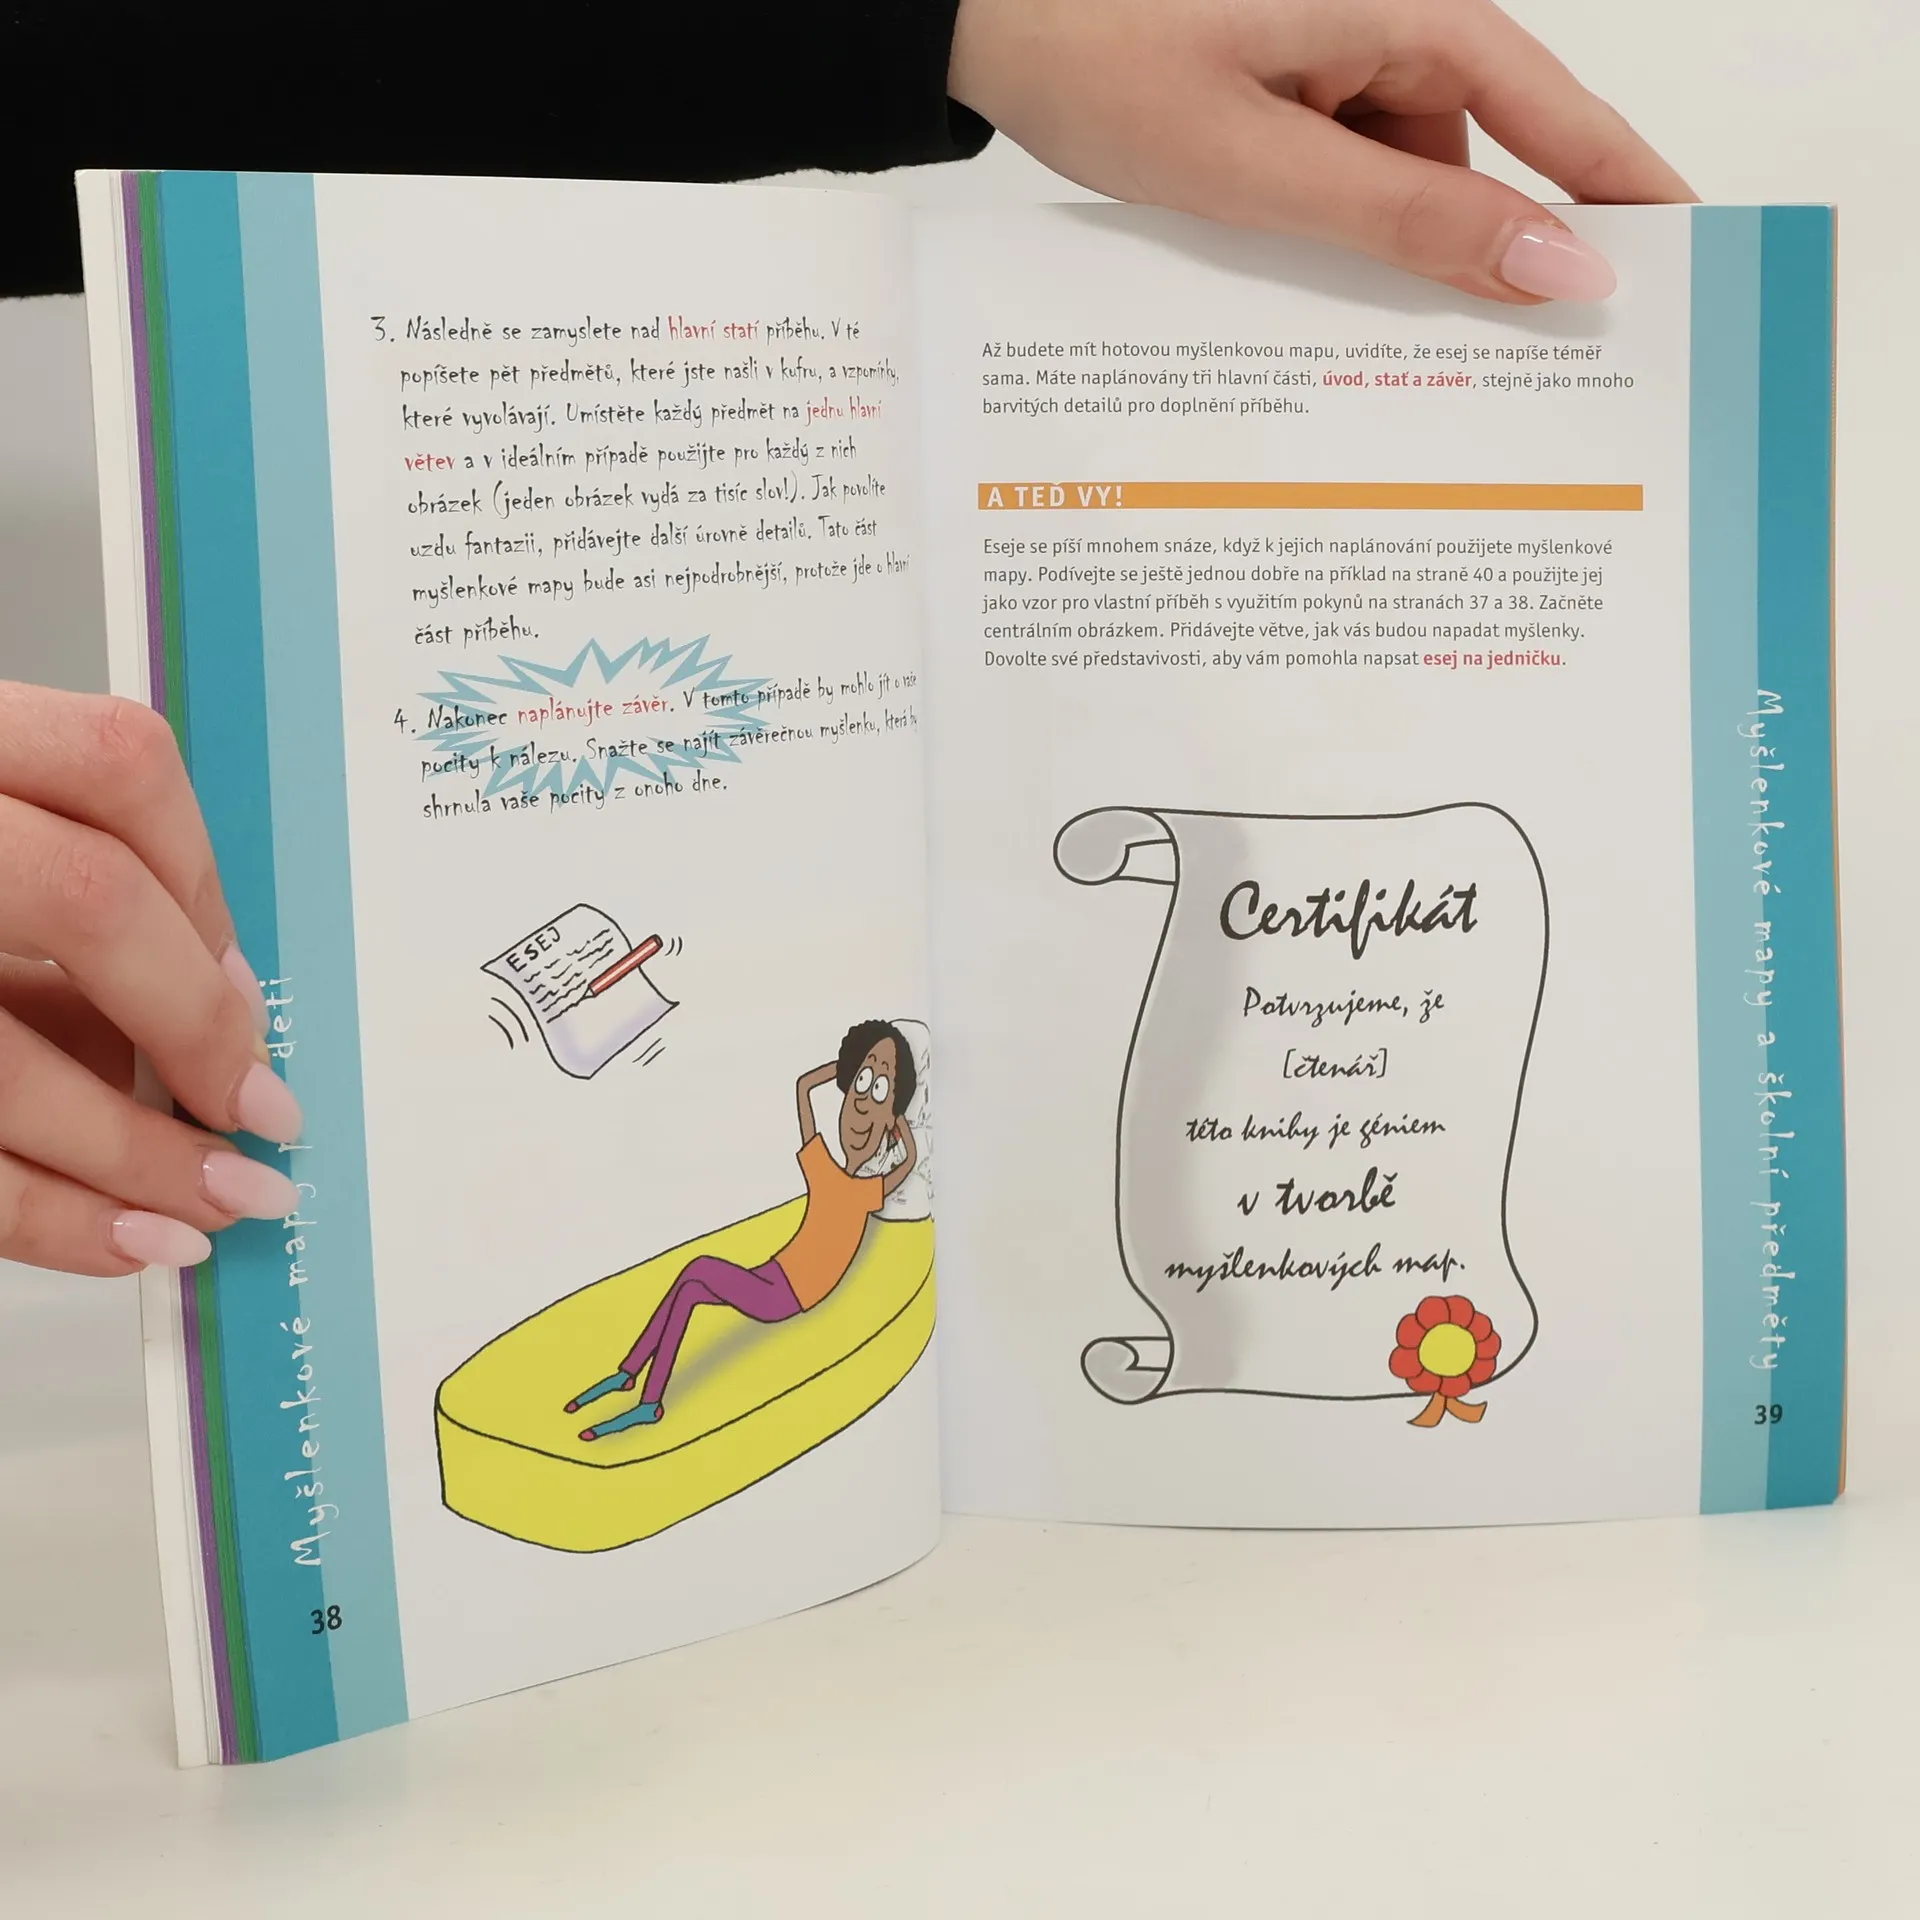 3. Následně se zamyslete nad hlavní statí příběhu. V té
popíšete pět předmětů, které jste našli v kufru, a vzpomínky,
které vyvolávají. Umístěte každý předmět na jednu hlavní
větev a v ideálním případě použijte pro každý z nich
obrázek (jeden obrázek vydá za tisíc slov!). Jak povolíte
uzdu fantazii, přidávejte další úrovně detailů. Tato část
myšlenkové mapy bude asi nejpodrobnější, protože jde o hlavní
část příběhu.
4. Nakonec naplánujte závěr. V tomto případě by mohlo jít o vaše
pocity k nálezu. Snažte se najít závěrečnou myšlenku, která by
shrnula vaše pocity z onoho dne.
ESEJ
Myšlenkové mapy děti
38
Až budete mít hotovou myšlenkovou mapu, uvidíte, že esej se napíše téměř
sama. Máte naplánovány tři hlavní části, úvod, stať a závěr, stejně jako mnoho
barvitých detailů pro doplnění příběhu.
A TEĎ VY!
Eseje se píší mnohem snáze, když k jejich naplánování použijete myšlenkové
mapy. Podívejte se ještě jednou dobře na příklad na straně 40 a použijte jej
jako vzor pro vlastní příběh s využitím pokynů na stranách 37 a 38. Začněte
centrálním obrázkem. Přidávejte větve, jak vás budou napadat myšlenky.
Dovolte své představivosti, aby vám pomohla napsat esej na jedničku.
Certifikát
Potvrzujeme, že
[čtenář]
této knihy je géniem
v tvorbě
myšlenkových map.
Myšlenkové mapy a školní předměty
39